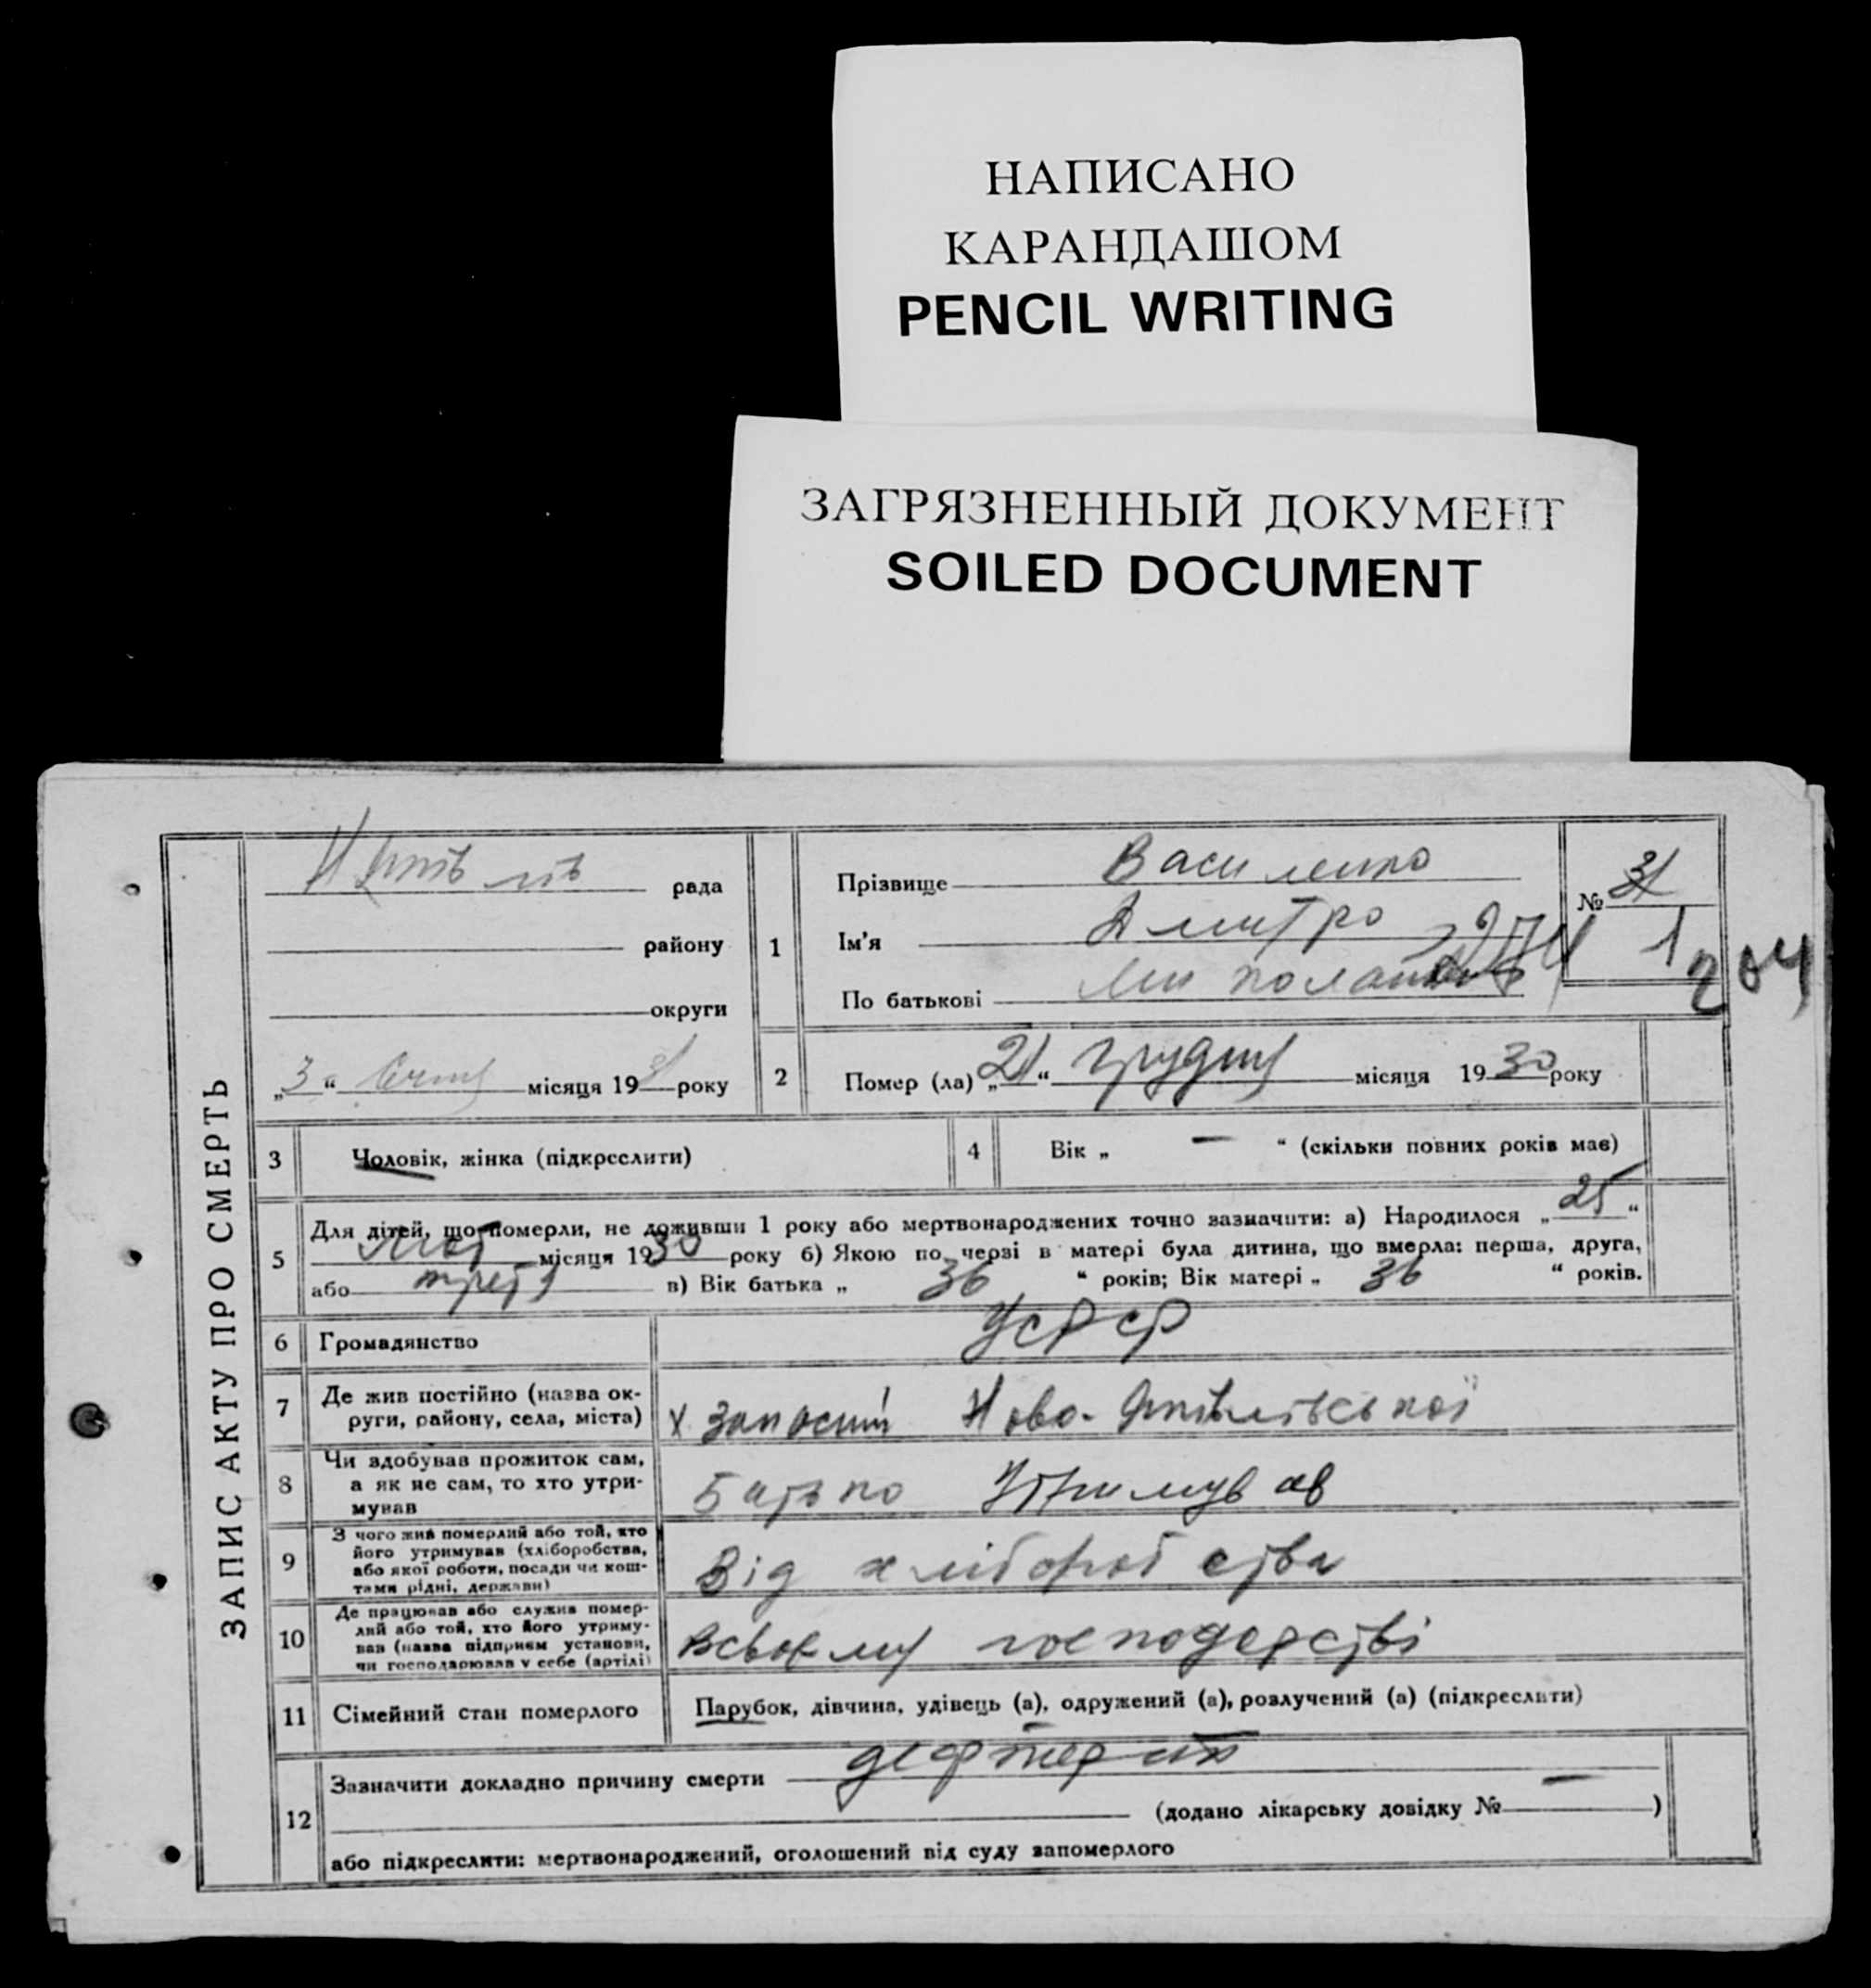 НАПИСАНО
КАРАНДАШОМ
PENCIL WRITING
ЗАГРЯЗНЕННЫЙ ДОКУМЕНТ
SOILED DOCUMENT
ЗАПИС АКТУ ПРО СМЕРТЬ
рада
району
округи
„3“ січня місяця 19 року
1
Прізвище Василенко
Ім'я Дмитро
По батькові Миколайов
№ 31
1
204
2
Помер (ла) „21“ грудня місяця 1930 року
3
Чоловік, жінка (підкреслити)
4
Вік „ — “ (скільки повних років має)
5
Для дітей, що померли, не доживши 1 року або мертвонароджених точно зазначити: а) Народилося „25“
місяця 1930 року б) Якою по черзі в матері була дитина, що вмерла: перша, друга,
або третя в) Вік батька „ 36 “ років; Вік матері „ 36 “ років.
6
Громадянство
УСРР
7
Де жив постійно (назва ок-
руги, району, села, міста)
х Ново-
8
Чи здобував прожиток сам,
а як не сам, то хто утри-
мував
Батько Утримував
9
З чого жив померлий або той, хто
його утримував (хліборобства,
або якої роботи, посади чи кош-
тами рідні, держави)
Від хліборобства
10
Де працював або служив помер-
лий або той, хто його утриму-
вав (назва підприєм установи,
чи господарював у себе (артілі)
Всвоєму господарстві
11
Сімейний стан померлого
Парубок, дівчина, удівець (а), одружений (а), розлучений (а) (підкреслити)
12
Зазначити докладно причину смерти дефтерит
(додано лікарську довідку № — )
або підкреслити: мертвонароджений, оголошений від суду запомерлого